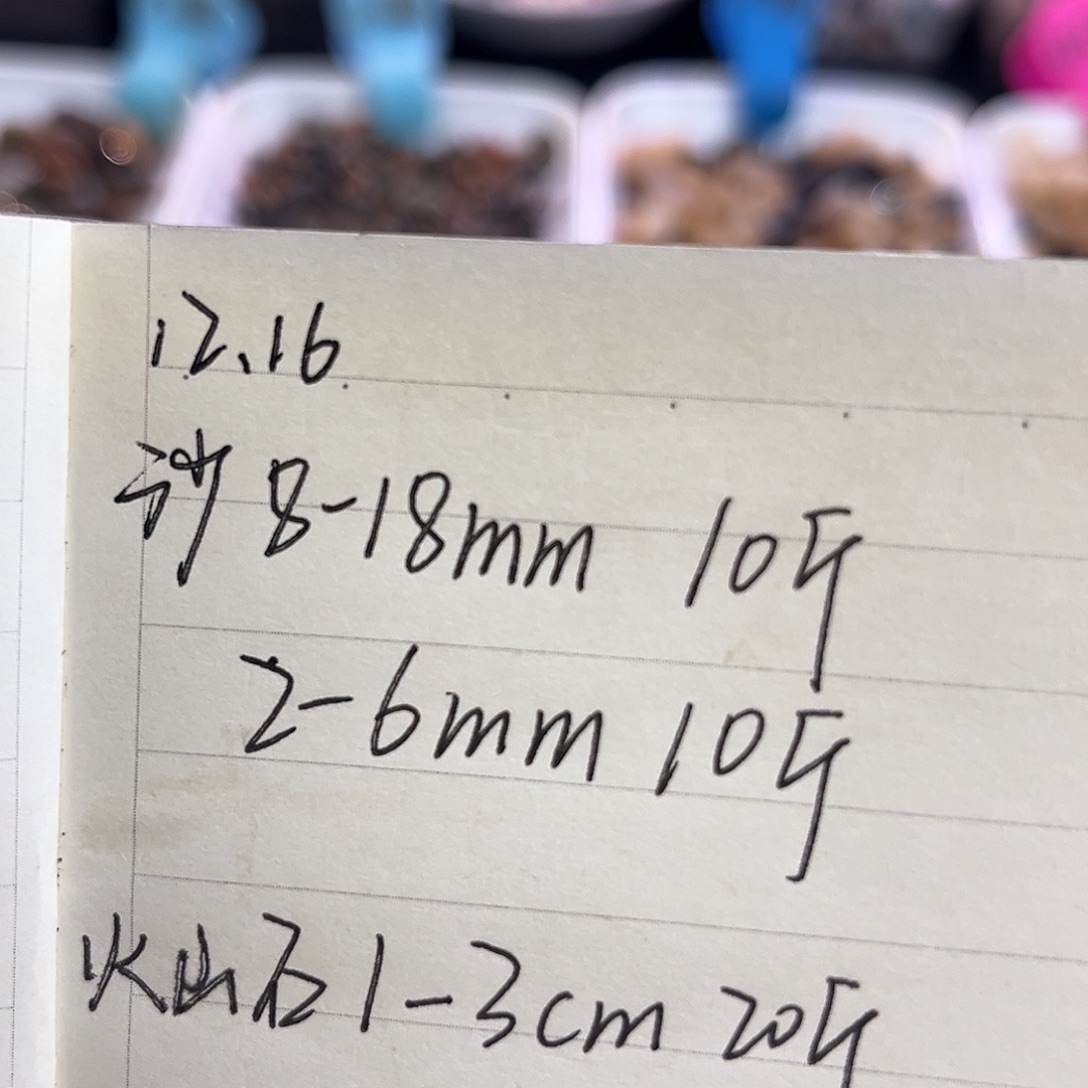 12.16
沙 8-18mm 10斤
2-6mm 10斤
火山石 1-3cm 20斤